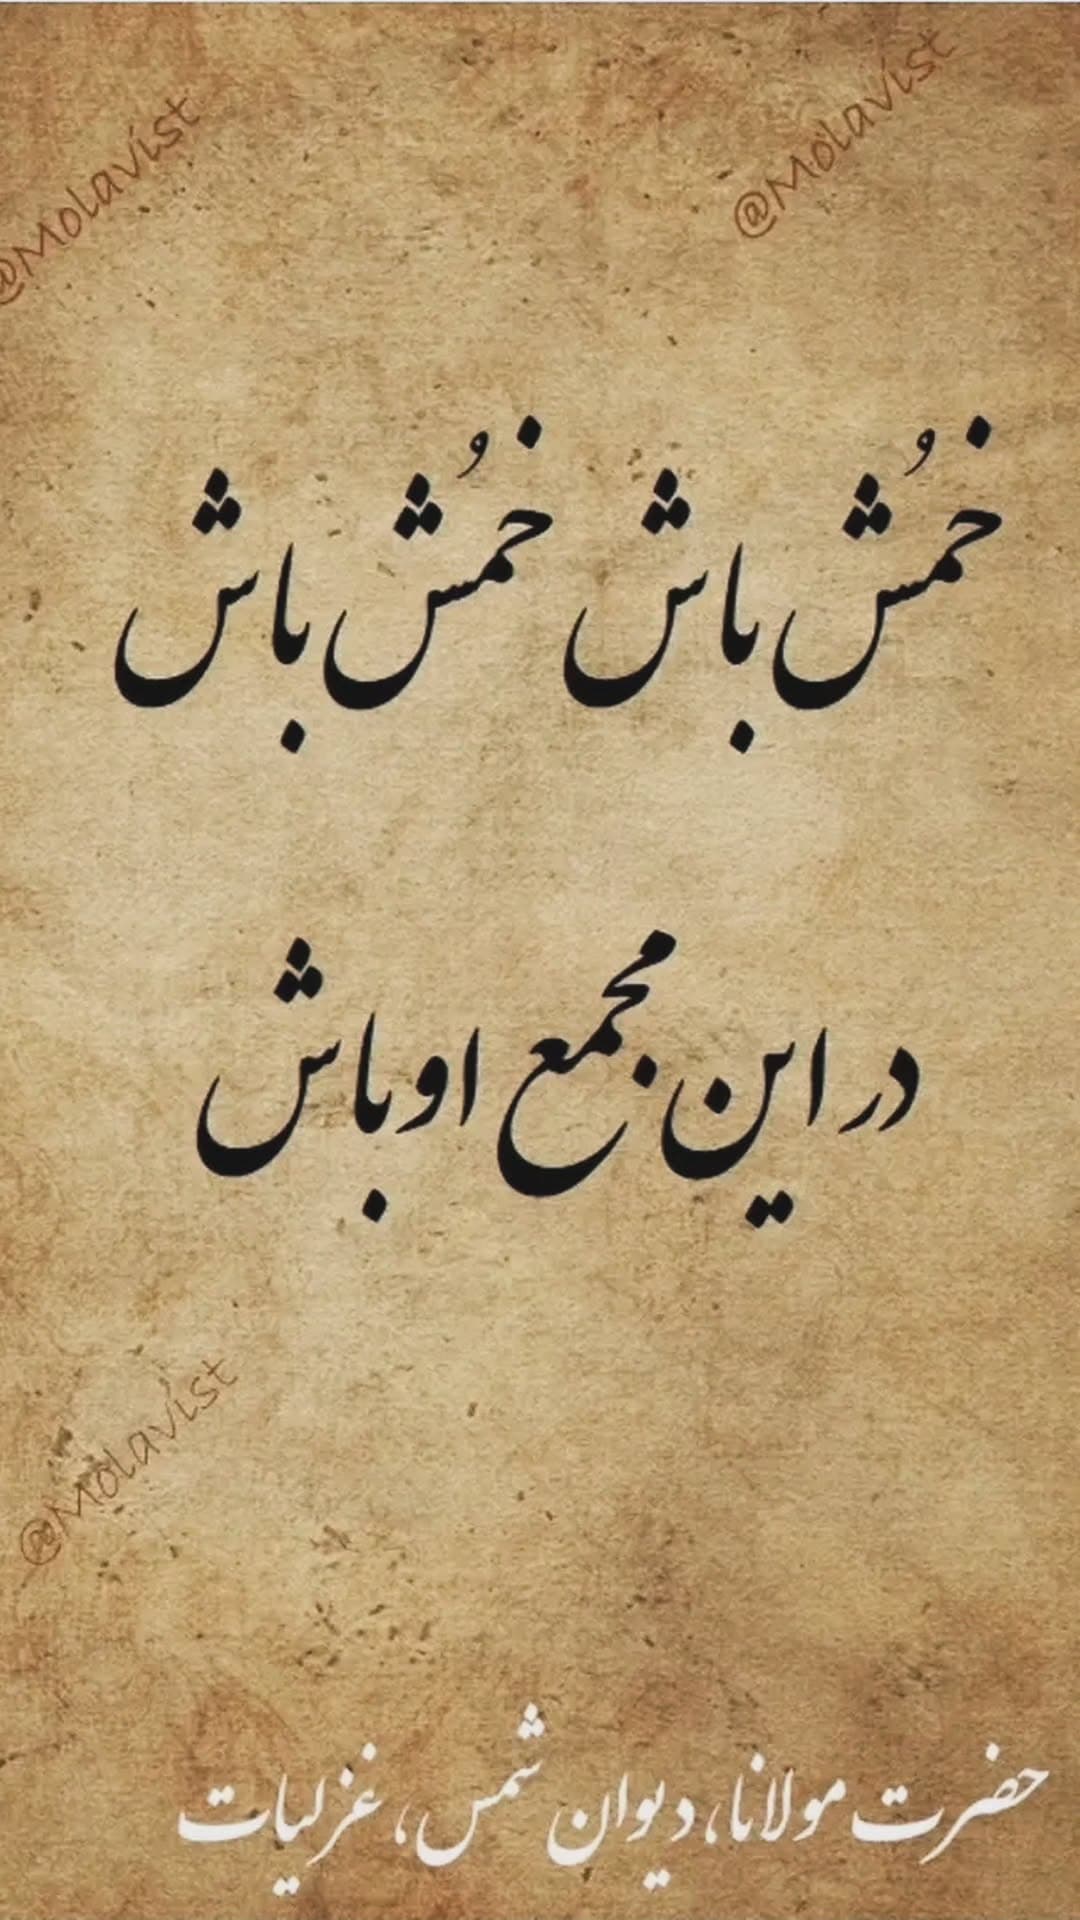 @Molavist
@Molavist
خمُش باش خمُش باش
در این مجمع اوباش
@Molavist
حضرت مولانا، دیوان شمس، غزلیات